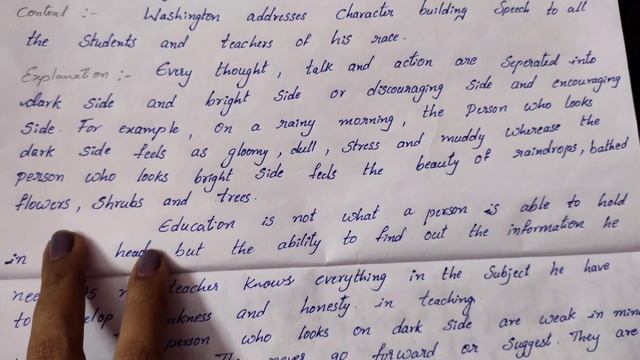 Context :- Washington addresses Character building Speech to all
the Students and teachers of his race.
Explanation :- Every thought, talk and action are Seperated into
dark Side and bright Side or discouraging Side and encouraging
Side. For example, on a rainy morning, the Person who looks
dark Side feels as gloomy, dull, Stress and muddy wherease the
person who looks bright Side feels the beauty of raindrops, bathed
flowers, Shrubs and trees.
Education is not what a person is able to hold
in head but the ability to find out the information he
teacher knows everything in the Subject he have
to and honesty. in teaching.
person who looks on dark Side are weak in
never go forward or Suggest. They are